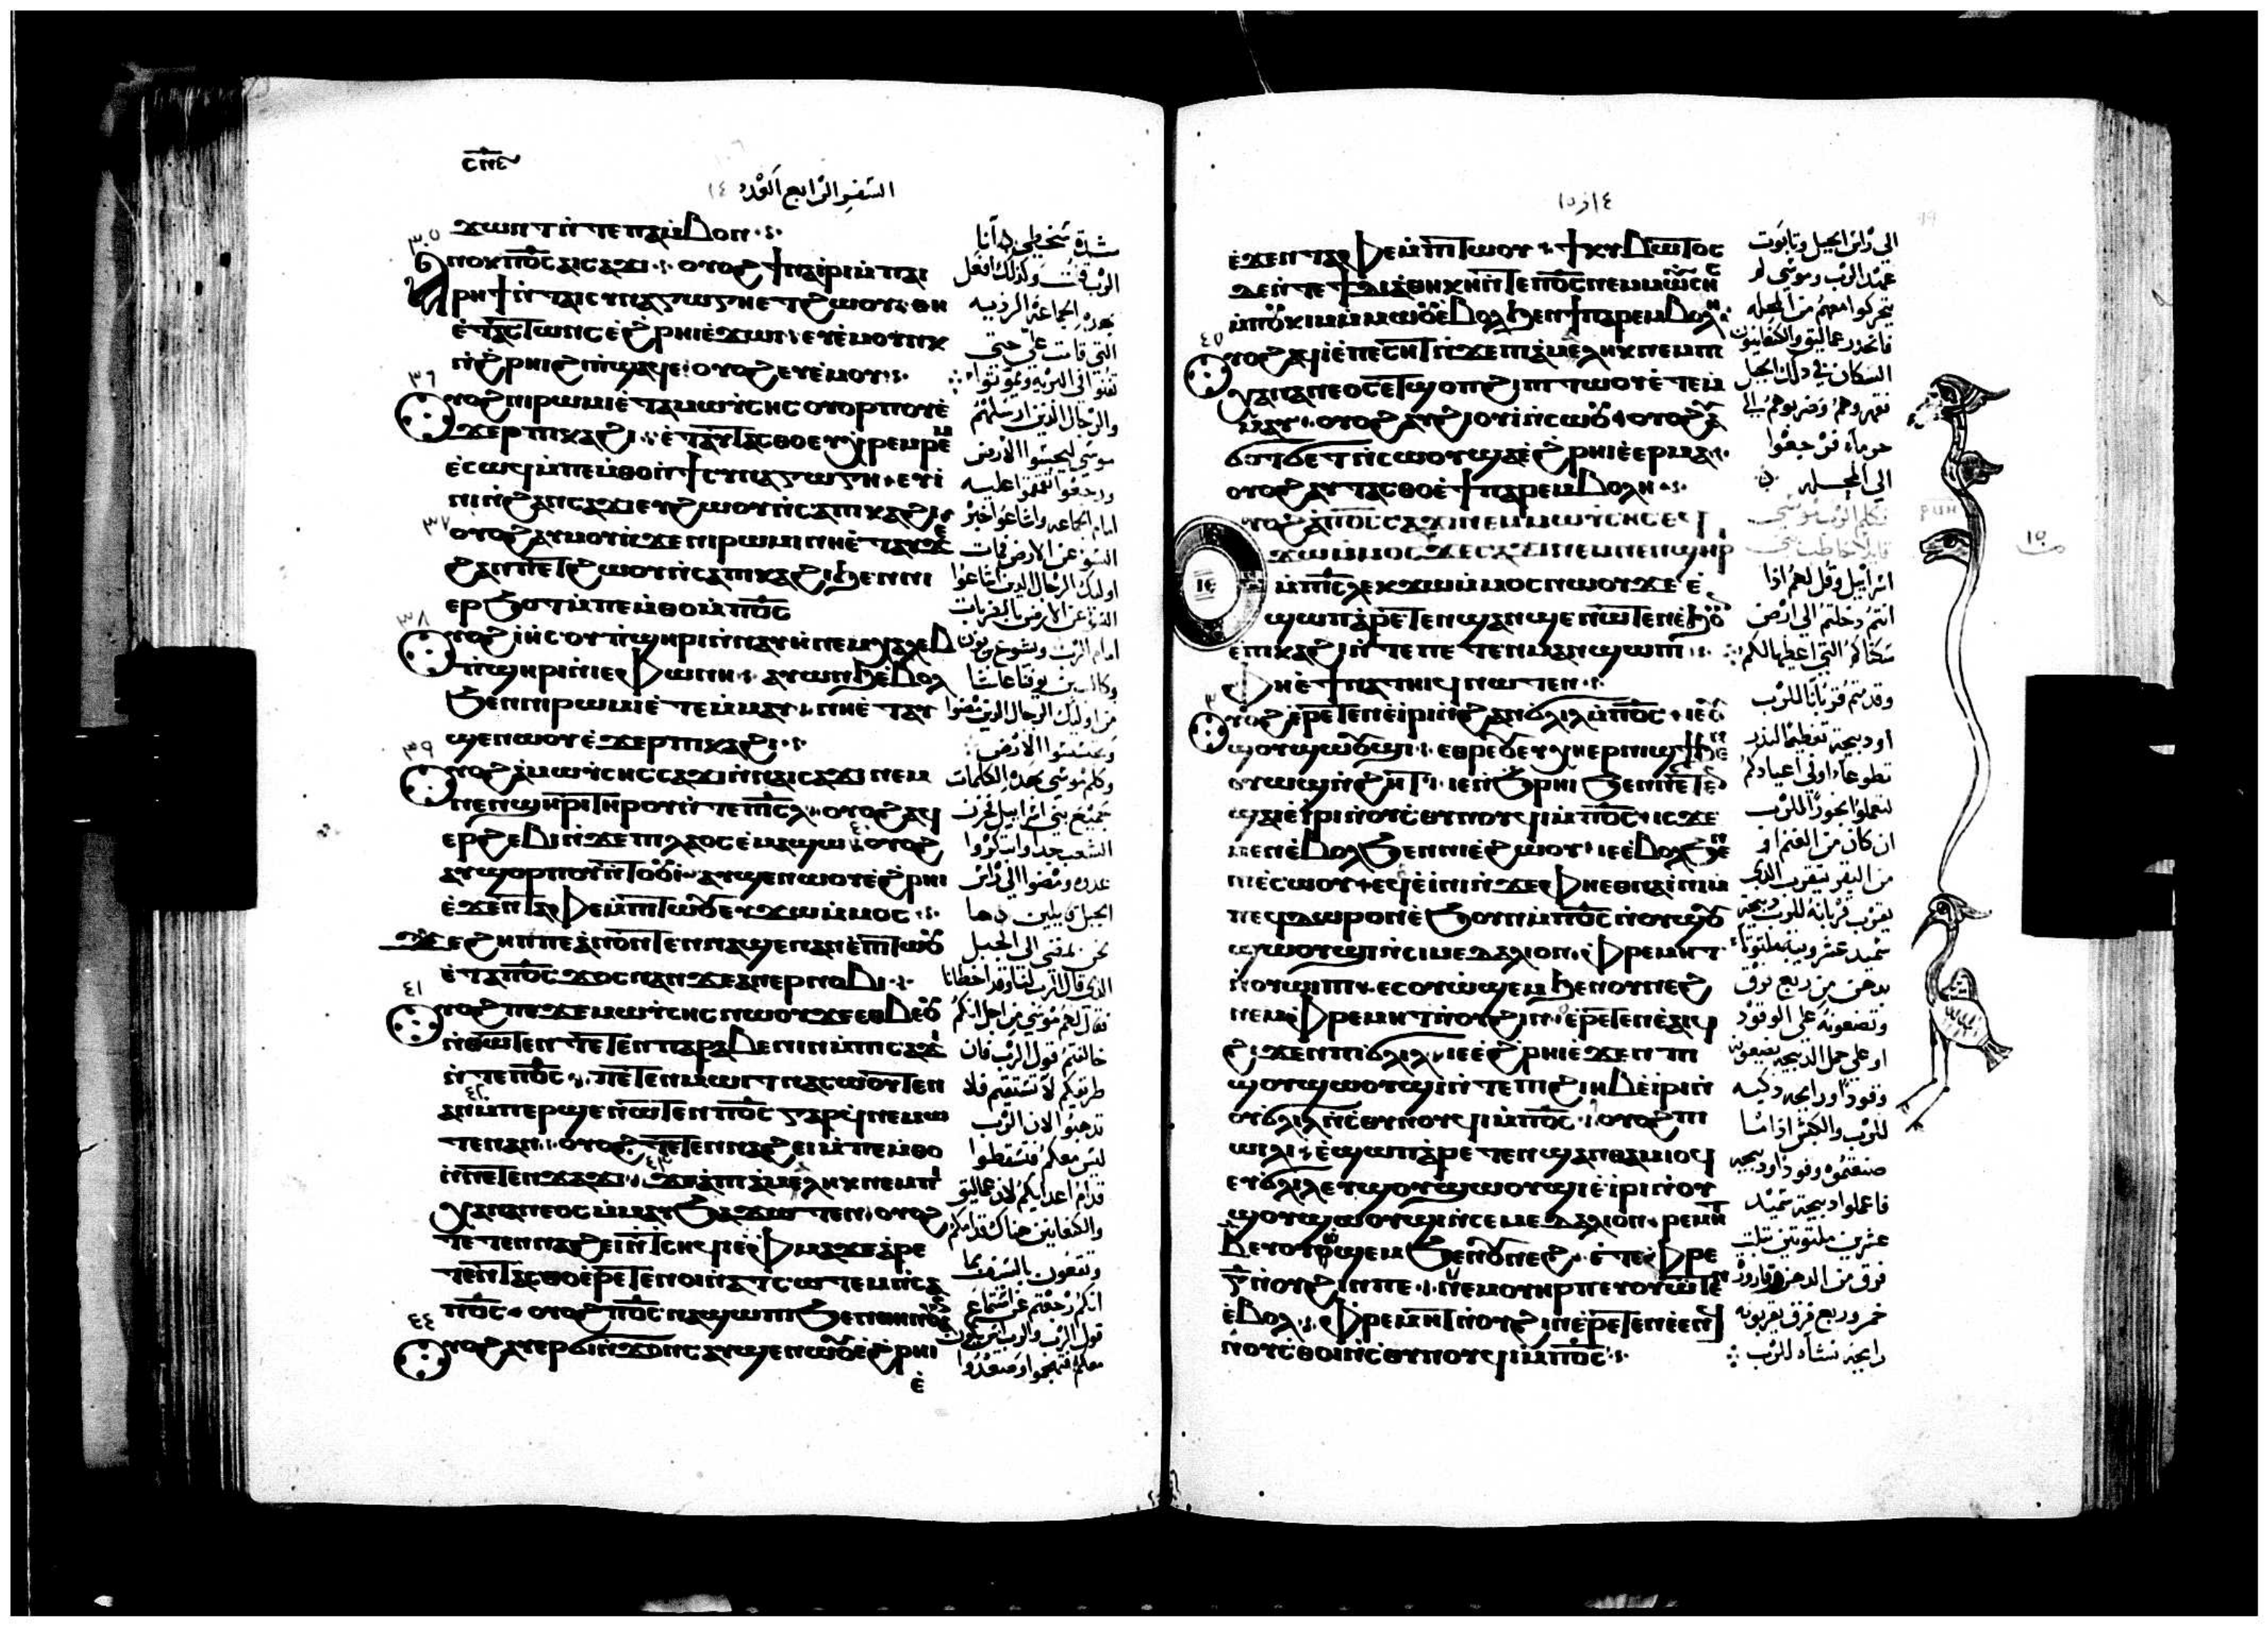 ⲥⲛⲉ
السفر الرابع العدد ١٤
ϫⲱⲛⲧ ⲛ̀ⲧⲉ ⲡⲁⲙ̀ⲃⲟⲛ
٣٥
ⲁⲛⲟⲕ ⲡⲟ̅ⲥ̅ ⲁⲓⲥⲁϫⲓ ⲟⲩⲟϩ ϯⲛⲁⲓ̀ⲣⲓ ⲙ̀ⲡⲁⲓ
ⲣⲏϯ ⲛ̀ⲧⲁⲓⲥⲩⲛⲁⲅⲱⲅⲏ ⲉⲧϩⲱⲟⲩ ⲑⲏ
ⲉ̀ⲧⲁⲥⲧⲱⲛⲥ ⲉ̀ϩ̀ⲣⲏⲓ ⲉ̀ϫⲱⲓ ⲉⲩⲉ̀ⲙⲟⲩⲛⲕ
ⲛ̀ϩ̀ⲣⲏⲓ ϩⲓ ⲡ̀ϣⲁϥⲉ ⲟⲩⲟϩ ⲉⲩⲉ̀ⲙⲟⲩ
٣٦
ⲟⲩⲟϩ ⲛⲓⲣⲱⲙⲓ ⲉ̀ⲧⲁ ⲙⲱⲩⲥⲏⲥ ⲟⲩⲟⲣⲡⲟⲩ ⲉ̀
ϫⲉⲣ ⲡⲓⲕⲁϩⲓ ⲉ̀ⲧⲁⲩⲧⲁⲥⲑⲟ ⲉⲩⲭ̀ⲣⲉⲙⲣⲉⲙ
ⲉ̀ⲥⲱϥ ⲙ̀ⲡⲉⲙ̀ⲑⲟ ⲛ̀ϯⲥⲩⲛⲁⲅⲱⲅⲏ ⲉⲩⲓ̀
ⲛⲓ ⲛ̀ϩⲁⲛⲥⲁϫⲓ ⲉⲩϩⲱⲟⲩ ⲛ̀ⲥⲁ ⲡⲓⲕⲁϩⲓ
٣٧
ⲟⲩⲟϩ ⲁⲩⲙⲟⲩ ⲛ̀ϫⲉ ⲛⲓⲣⲱⲙⲓ ⲛⲏ ⲉ̀ⲧⲁⲩϫⲉ
ϩⲁⲛⲡⲉⲧϩⲱⲟⲩ ⲛ̀ⲥⲁ ⲡⲓⲕⲁϩⲓ ϧⲉⲛ ⲛⲓ
ⲉⲣϧⲟⲧ ⲙ̀ⲡⲉⲙ̀ⲑⲟ ⲙ̀ⲡⲟ̅ⲥ̅
٣٨
ⲟⲩⲟϩ ⲓⲏⲥⲟⲩ ⲡ̀ϣⲏⲣⲓ ⲛ̀ⲛⲁⲩⲏ ⲛⲉⲙ ⲭⲁⲗⲉⲃ
ⲡ̀ϣⲏⲣⲓ ⲛ̀ⲓⲉⲫⲱⲛⲏ ⲁⲩⲱⲛϧ ⲉ̀ⲃⲟⲗ
ϧⲉⲛ ⲛⲓⲣⲱⲙⲓ ⲉ̀ⲧⲉⲙ̀ⲙⲁⲩ ⲛⲏ ⲉ̀ⲧⲁⲩ
ϣⲉⲛⲱⲟⲩ ⲉ̀ϫⲉⲣ ⲡⲓⲕⲁϩⲓ
٣٩
ⲟⲩⲟϩ ⲁ̀ ⲙⲱⲩⲥⲏⲥ ⲥⲁϫⲓ ⲛ̀ⲛⲁⲓⲥⲁϫⲓ ⲛⲉⲙ
ⲛⲉⲛϣⲏⲣⲓ ⲧⲏⲣⲟⲩ ⲛ̀ⲧⲉ ⲡⲓⲥ̅ⲗ̅ ⲟⲩⲟϩ ⲁϥ
ⲉⲣϩⲉⲃⲓ ⲛ̀ϫⲉ ⲡⲓⲗⲁⲟⲥ ⲉ̀ⲙⲁϣⲱ ٤٠ ⲟⲩⲟϩ
ⲁⲩϣⲟⲣⲡⲟⲩ ⲛ̀ⲧⲟⲟⲩⲓ̀ ⲁⲩϣⲉⲛⲱⲟⲩ ⲉ̀ϩ̀ⲣⲏⲓ
ⲉ̀ϫⲉⲛ ⲧⲁⲫⲉ ⲙ̀ⲡⲧⲱⲟⲩ ⲉⲩϫⲱ ⲙ̀ⲙⲟⲥ
ϫⲉ ϩⲏⲡⲡⲉ ⲁ̀ⲛⲟⲛ ⲧⲉⲛⲛⲁϣⲉⲛⲁⲛ ⲉ̀ⲡⲧⲱⲟⲩ
ⲉ̀ⲧⲁ ⲡⲟ̅ⲥ̅ ϫⲟⲥ ⲛⲁⲛ ϫⲉ ⲁⲛⲉⲣⲛⲟⲃⲓ
٤١
ⲟⲩⲟϩ ⲡⲉϫⲉ ⲙⲱⲩⲥⲏⲥ ⲛⲱⲟⲩ ϫⲉ ⲉⲑⲃⲉⲟⲩ
ⲛ̀ⲑⲱⲧⲉⲛ ⲧⲉⲧⲉⲛⲡⲁⲣⲁⲃⲉⲛⲓⲛ ⲙ̀ⲡⲓⲥⲁϫⲓ
ⲛ̀ⲧⲉ ⲡⲟ̅ⲥ̅ ⲡⲉⲧⲉⲛⲙⲱⲓⲧ ⲛⲁⲥⲱⲟⲩⲧⲉⲛ
ⲁⲛ ٤٢ ⲙ̀ⲡⲉⲣϣⲉⲛⲱⲧⲉⲛ ⲡⲟ̅ⲥ̅ ⲅⲁⲣ ϥ̀ⲛⲉⲙⲱ
ⲧⲉⲛ ⲁⲛ ⲟⲩⲟϩ ⲧⲉⲧⲉⲛⲛⲁϩⲉⲓ ⲙ̀ⲡⲉⲙ̀ⲑⲟ
ⲛ̀ⲛⲉⲧⲉⲛϫⲁϫⲓ ٤٣ ϫⲉ ⲁ̀ ⲡⲓⲁ̀ⲙⲉⲗⲏⲕ ⲛⲉⲙ ⲡⲓ
ⲭⲁⲛⲁⲛⲉⲟⲥ ⲙ̀ⲙⲁⲩ ϧⲁϫⲱⲧⲉⲛ ⲟⲩⲟϩ
ⲧⲉⲧⲉⲛⲛⲁϩⲉⲓ ⲛ̀ⲧⲥⲏϥⲓ ⲉ̀ⲫⲙⲁ ϫⲉ ⲁ̀ⲣⲉ
ⲧⲉⲛⲧⲁⲥⲑⲟ ⲉ̀ⲣⲉⲧⲉⲛⲟⲓ ⲛ̀ⲁⲧⲥⲱⲧⲉⲙ ⲛ̀ⲥⲁ
ⲡⲟ̅ⲥ̅ ⲟⲩⲟϩ ⲡⲟ̅ⲥ̅ ⲛⲁϣⲱⲡⲓ ϧⲉⲛ ⲑⲏⲛⲟⲩ
٤٤
ⲟⲩⲟϩ ⲁⲩⲉⲣϭⲓⲛϫⲟⲛⲥ ⲁⲩϣⲉⲛⲱⲟⲩ ⲉ̀ϩ̀ⲣⲏⲓ
ⲉ̀
شدة سخطي انا
الرب قلت وكذلك افعل
بهذه الجماعة الرديه
التي قامت علي حتى
تفنوا في البريه وتموتوا
والرجال الذين ارسلهم
موسى ليجسوا الارض
ورجعوا تقمقموا عليه
امام الجماعه واشاعوا خبر
السوء عن الارض فمات
اوليك الرجال الذين اشاعوا
السوء عن الارض بالضربات
امام الرب ويشوع بن نون
وكالب بن يوفنا عاشا
من اوليك الرجال الذين مضوا
وجسسوا الارض
وكلم موسى بهذه الكلمات
جميع بني اسراييل فحزن
الشعب جدا وابتكروا
غدوه ومضوا الى راس
الجبل قايلين ها
نحن نمضي الى الجبل
الذي قال الرب لنا وقد اخطانا
فقال لهم موسى من اجل انكم
خالفتم قول الرب فان
طرقكم لا تستقيم فلا
تذهبوا الان الرب
ليس معكم فتسقطوا
قدام اعدايكم لان عماليق
والكنعانيين هناك قدامكم
وتقعون بالسيف بما
انكم رجعتم غير استماع
قول الرب والرب ليس يكون
معكم فتهجموا وصعدوا
١٤ و ١٥
ⲉ̀ϫⲉⲛ ⲧⲁⲫⲉ ⲙ̀ⲡⲧⲱⲟⲩ ϯⲕⲩⲃⲱⲧⲟⲥ
ⲇⲉ ⲛ̀ⲧⲉ ϯⲇⲓⲁⲑⲏⲕⲏ ⲛ̀ⲧⲉ ⲡⲟ̅ⲥ̅ ⲛⲉⲙ ⲙⲱⲩⲥⲏⲥ
ⲙ̀ⲡⲟⲩⲕⲓⲙ ⲙ̀ⲙⲱⲟⲩ ⲉ̀ⲃⲟⲗ ϧⲉⲛ ϯⲡⲁⲣⲉⲙⲃⲟⲗⲏ
٤٥
ⲟⲩⲟϩ ⲁϥⲓ̀ ⲉ̀ⲡⲉⲥⲏⲧ ⲛ̀ϫⲉ ⲡⲓⲁ̀ⲙⲉⲗⲏⲕ ⲛⲉⲙ ⲡⲓ
ⲭⲁⲛⲁⲛⲉⲟⲥ ⲉⲧϣⲟⲡ ϩⲓ ⲡⲓⲧⲱⲟⲩ ⲉ̀ⲧⲉⲙ̀
ⲙⲁⲩ ⲟⲩⲟϩ ⲁⲩϩⲓⲟⲩⲓ̀ ⲛ̀ⲥⲱⲟⲩ ⲟⲩⲟϩ ⲁⲩ
ϭⲟϫϭⲉϫ ⲛ̀ⲥⲱⲟⲩ ϣⲁ ⲉ̀ϩ̀ⲣⲏⲓ ⲉ̀ⲉⲣⲙⲁ
ⲟⲩⲟϩ ⲁⲩⲧⲁⲥⲑⲟ ⲉ̀ϯⲡⲁⲣⲉⲙⲃⲟⲗⲏ
ⲓⲉ
ⲟⲩⲟϩ ⲁ̀ ⲡⲟ̅ⲥ̅ ⲥⲁϫⲓ ⲛⲉⲙ ⲙⲱⲩⲥⲏⲥ ⲉϥ
ϫⲱ ⲙ̀ⲙⲟⲥ ϫⲉ ⲥⲁϫⲓ ⲛⲉⲙ ⲛⲉⲛϣⲏⲣⲓ
ⲙ̀ⲡⲓⲥ̅ⲗ̅ ⲉⲕϫⲱ ⲙ̀ⲙⲟⲥ ⲛⲱⲟⲩ ϫⲉ ⲉ̀
ϣⲱⲡ ⲁ̀ⲣⲉⲧⲉⲛϣⲁⲛϣⲉⲛⲱⲧⲉⲛ ⲉ̀ϧⲟⲩⲛ
ⲉ̀ⲡⲕⲁϩⲓ ⲛ̀ⲧⲉ ⲡⲉⲧⲉⲛⲙⲁⲛϣⲱⲡⲓ
ⲫⲏ ⲉ̀ϯⲛⲁⲧⲏⲓϥ ⲛⲱⲧⲉⲛ
٣
ⲟⲩⲟϩ ⲉ̀ⲣⲉⲧⲉⲛⲉ̀ⲓⲣⲓ ⲛ̀ϩⲁⲛϭⲗⲓⲗ ⲙ̀ⲡⲟ̅ⲥ̅ ⲓⲉ ⲟⲩ
ϣⲟⲩϣⲱⲟⲩϣⲓ ⲉⲑⲣⲉⲟⲩⲉⲩⲭⲏ ⲉⲣⲛⲓϣϯ ϧⲉⲛ
ⲟⲩⲱϣ ⲛ̀ϩⲏⲧ ⲓⲉ ⲛ̀ϧ̀ⲣⲏⲓ ϧⲉⲛ ⲛⲉⲧⲉⲛ
ϣⲁⲓ ⲉ̀ⲓⲣⲓ ⲛ̀ⲟⲩⲥⲑⲟⲓⲛⲟⲩϥⲓ ⲙ̀ⲡⲟ̅ⲥ̅ ⲓⲥϫⲉ
ⲙⲉⲛ ⲉ̀ⲃⲟⲗ ϧⲉⲛ ⲛⲓⲉ̀ϩⲱⲟⲩ ⲓⲉ ⲉ̀ⲃⲟⲗ ϧⲉⲛ
ⲛⲓⲉ̀ⲥⲱⲟⲩ ⲉϥⲉ̀ⲓ̀ⲛⲓ ⲛ̀ϫⲉ ⲫⲏ ⲉⲑⲛⲁⲓ̀ⲛⲓ ⲙ̀
ⲡⲉϥⲇⲱⲣⲟⲛ ⲉ̀ϧⲟⲩⲛ ⲙ̀ⲡⲟ̅ⲥ̅ ⲛ̀ⲟⲩϣⲟⲩ
ϣⲱⲟⲩϣⲓ ⲛ̀ⲥⲓⲙⲉⲇⲁⲗⲓⲟⲛ ⲫⲣⲉⲙⲏⲧ
ⲛ̀ⲟⲩϣⲓ ⲉⲥⲟⲩⲱϣⲉⲙ ϧⲉⲛ ⲟⲩⲛⲉϩ
ⲛⲉⲙ ⲫⲣⲉⲙⲏⲧ ⲛ̀ⲟⲩϩⲓⲛ ⲉ̀ⲣⲉⲧⲉⲛⲉ̀ⲁⲓϥ
ϩⲓϫⲉⲛ ⲡⲓϭⲗⲓⲗ ⲓⲉ ⲉ̀ϩ̀ⲣⲏⲓ ⲉ̀ϫⲉⲛ ⲡⲓ
ϣⲟⲩϣⲱⲟⲩϣⲓ ⲛ̀ⲧⲉ ⲡⲓϩⲓⲏⲃ ⲉ̀ⲓⲣⲓ ⲛ̀
ⲟⲩϭⲗⲓⲗ ⲛ̀ⲥⲑⲟⲓⲛⲟⲩϥⲓ ⲙ̀ⲡⲟ̅ⲥ̅ ⲟⲩⲟϩ ⲡⲓ
ⲱⲓⲗⲓ ⲉ̀ϣⲱⲡ ⲁ̀ⲣⲉⲧⲉⲛϣⲁⲛⲑⲁⲙⲓⲟϥ
ⲉⲩϭⲗⲓⲗ ⲉⲩϣⲟⲩϣⲱⲟⲩϣⲓ ⲉ̀ⲓⲣⲓ ⲛ̀ⲟⲩ
ϣⲟⲩϣⲱⲟⲩϣⲓ ⲛ̀ⲥⲉⲙⲉⲇⲁⲗⲓⲟⲛ ⲣⲉⲙⲏⲧ
ⲃ̅ ⲉⲩⲟⲩⲟϣⲉⲙ ϧⲉⲛ ⲟⲩⲛⲉϩ ⲛ̀ⲧⲉ ⲫⲣⲉ
ⲅ̅ ⲛ̀ⲟⲩϩⲓⲛ ⲡⲉ ⲛⲉⲙ ⲟⲩⲏⲣⲡ ⲉⲩⲟⲩⲱⲧⲉⲛ
ⲉ̀ⲃⲟⲗ ⲫⲣⲉⲙⲏⲧ ⲛ̀ⲟⲩϩⲓⲛ ⲉ̀ⲣⲉⲧⲉⲛⲉ̀ⲉⲛϥ
ⲛ̀ⲟⲩⲥⲑⲟⲓ ⲛ̀ⲥⲑⲟⲓⲛⲟⲩϥⲓ ⲙ̀ⲡⲟ̅ⲥ̅
الى راس الجبل وتابوت
عهد الرب وموسى لم
يتحركوا معهم من المحله
فانحدر عماليق والكنعانيون
السكان في ذلك الجبل
فقهروهم وضربوهم الى
حرما فرجعوا
الى المحله
فكلم الرب موسى
قايلا خاطب بني
اسراييل وقل لهم اذا
انتم دخلتم الى ارض
سكناكم التي اعطيها لكم
وقدمتم قربانا للرب
او ذبيحة تعظيم النذر
تطوعا او في اعيادكم
لتعملوا بخورا للرب
ان كان من الغنم او
من البقر يقرب الذي
يقرب قربانه للرب ذبيحة
سميد عشر ويبه ملتوتا
بدهن من ربع فرق
وتصنعونه على الوقود
او على حمل الذبيحه تصنعونه
وقودا ورايحه ذكيه
للرب والكبش اذا ما
صنعتموه وقودا وذبيحه
فاعملوا ذبيحة سميد
عشرين ملتوتين بثلث
فرق من الدهن وقارورة
خمر وربع فرق يقربونه
رايحة نشاه للرب
١٥